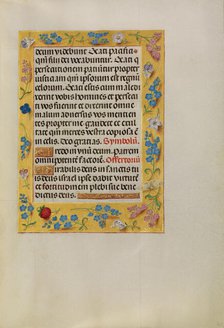 deum videbunt. Beati pacifici
qm filii dei vocabuntur. Beati q
persecutionem patiuntur propter
iusticiam qm ipsorum est regnum
celorum. Beati estis cum male
vobis homines et persecuti
vos fuerint et dixerint omne
malum adversum vos
propter me gaudete et exul
tate qm merces vestra copiosa est
in celis. Deo gratias. Symbolum.
Credo in unum deum. Patrem
omnipotentem factorem. Offertorium
Mirabilis deus in sanctis suis
deus israel ipse dabit virtutem
et fortitudinem plebi sue bene
dictus deus.